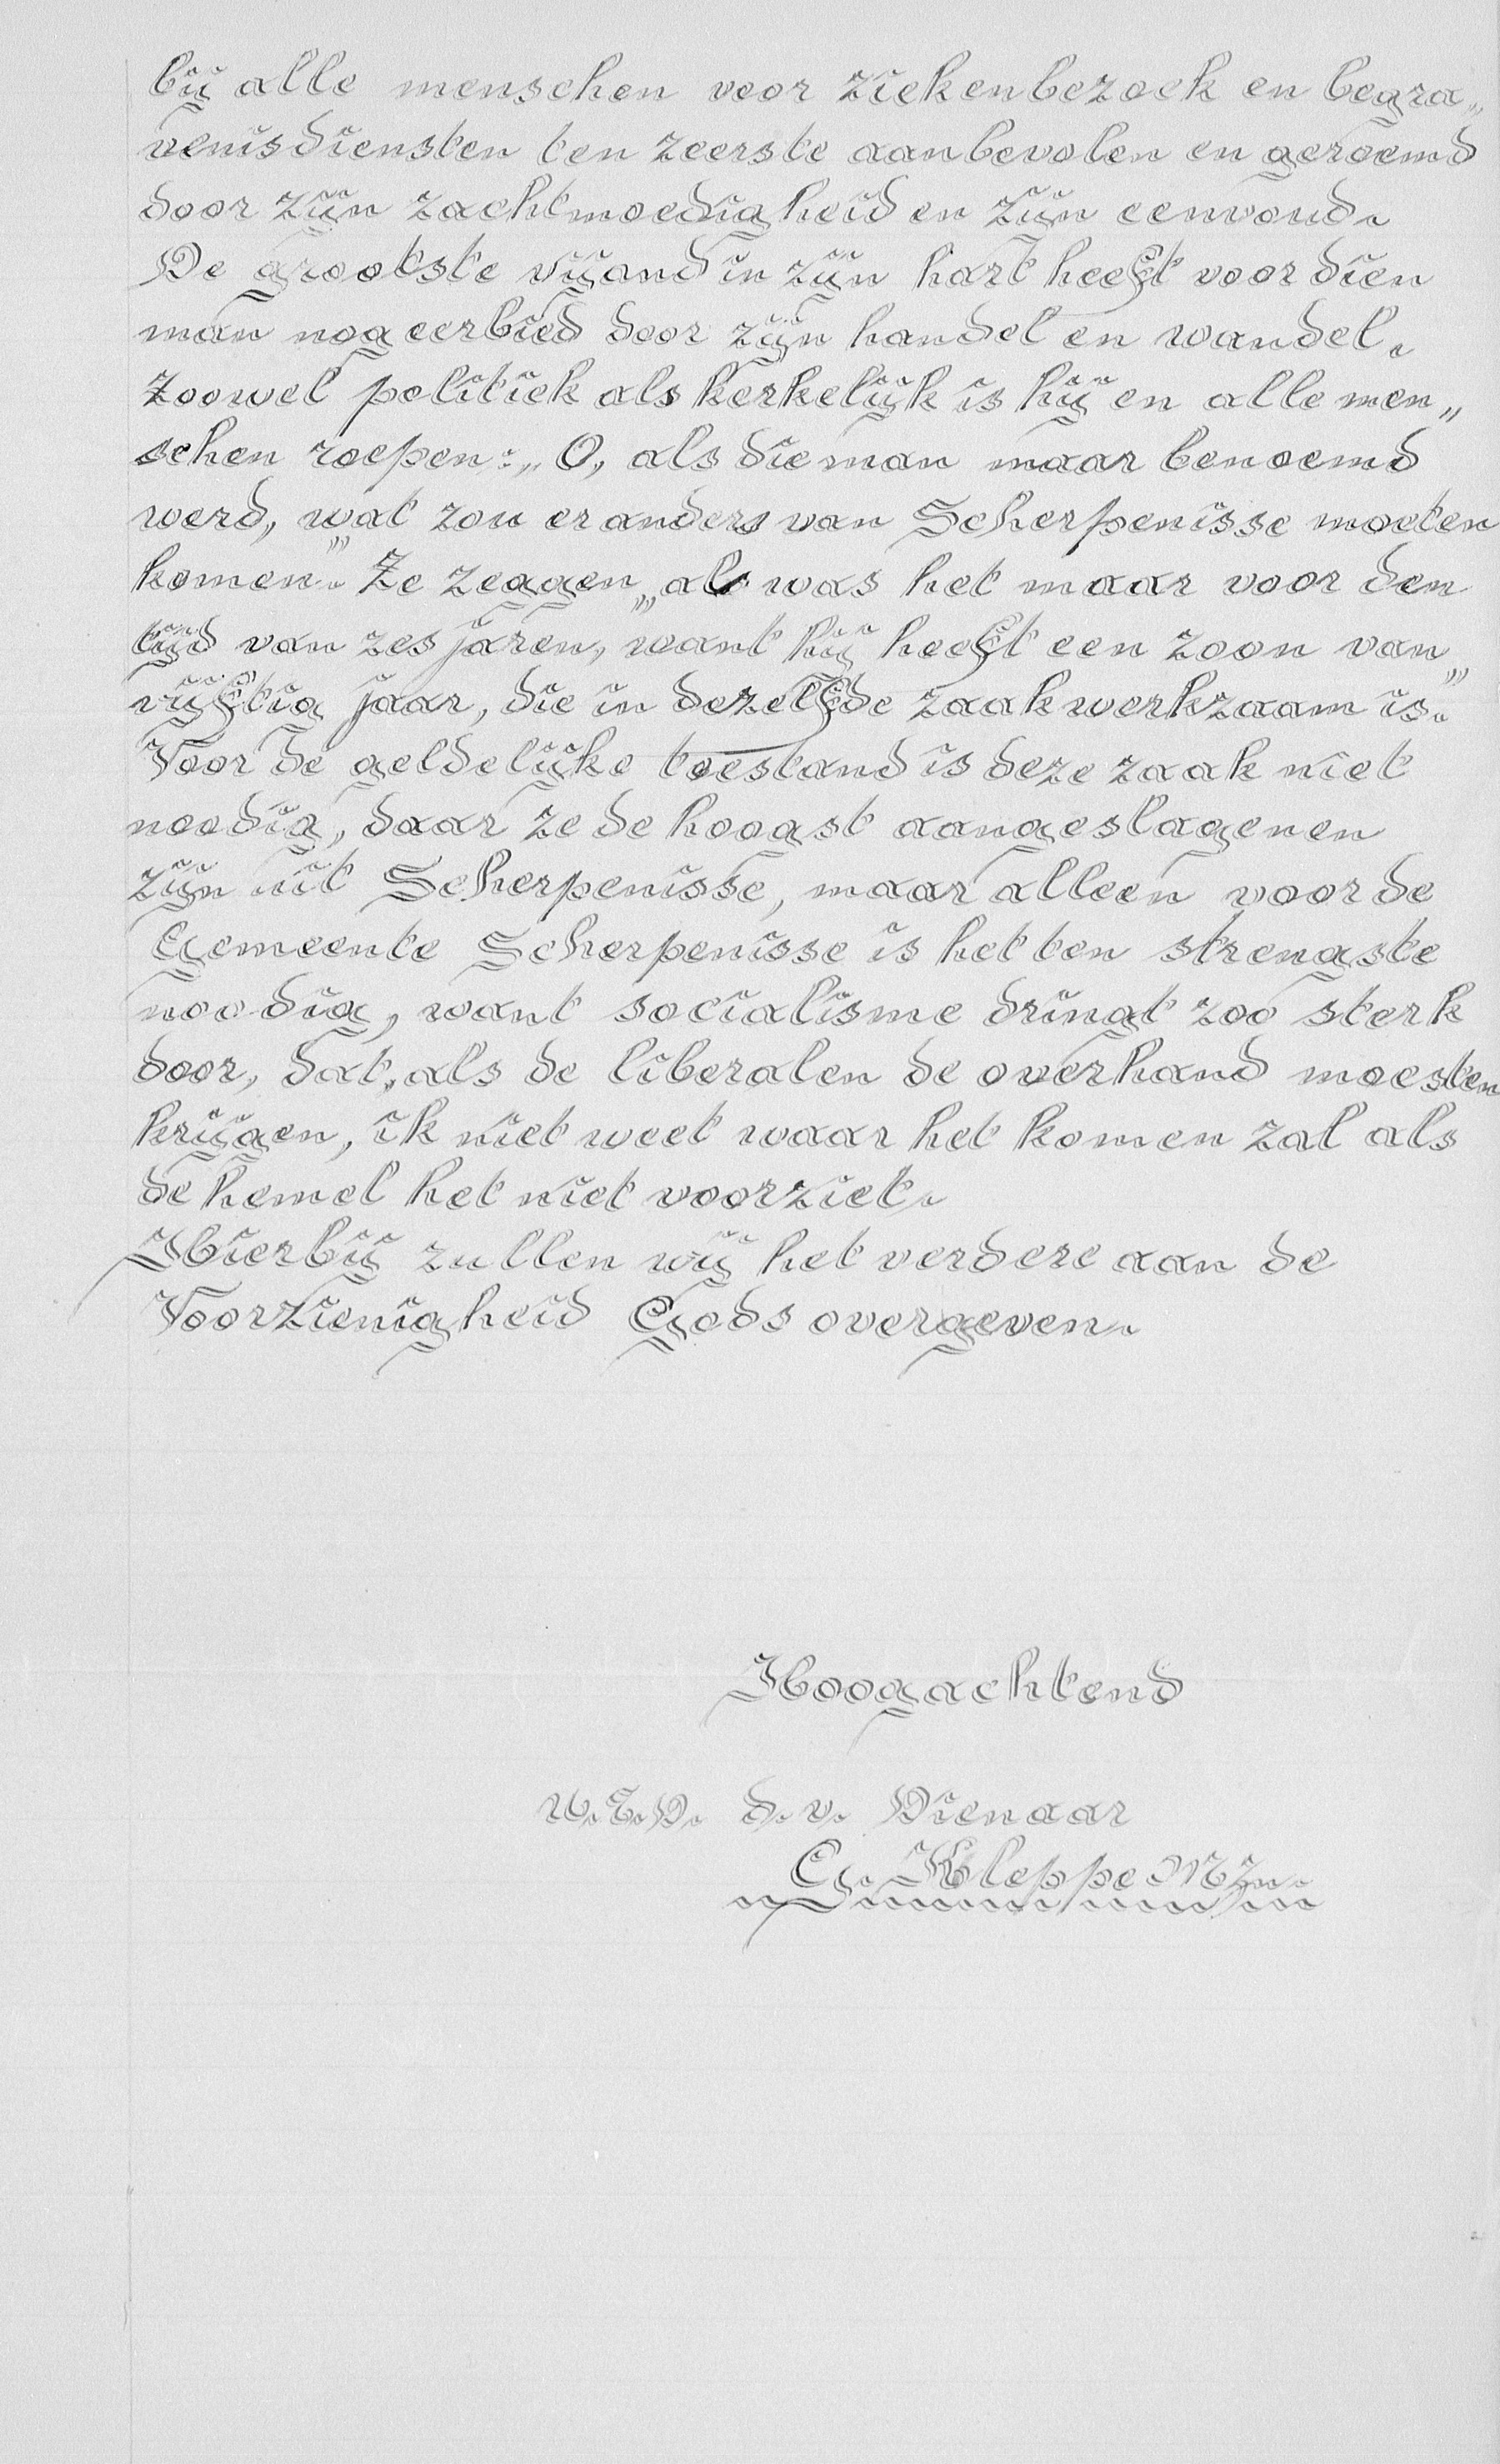 bij alle menschen voor ziekenbezoek en begra„
venisdiensten ten zeerste aanbevolen en geroemd
door zijn zachtmoedigheid en zijn eenvoud.
De grootste vijand in zijn hart heeft voor dien
man nog eerbied door zijn handel en wandel.
Zoowel politiek als kerkelijk is hij en alle men„
schen roepen: „O, als die man maar benoemd
werd, wat zou er anders van Scherpenisse moeten
komen." Ze zeggen „al was het maar voor den
tijd van zes jaren, want hij heeft een zoon van
vijftig jaar, die in dezelfde zaak werkzaam is."
Voor de geldelijke toestand is deze zaak niet
noodig, daar ze de hoogst aangeslagenen
zijn uit Scherpenisse, maar alleen voor de
Gemeente Scherpenisse is het ten strengste
noodig, want socialisme dringt zoo sterk
door, dat, als de liberalen de overhand moesten
krijgen, ik niet weet waar het komen zal als
de hemel het niet voorziet.
Hierbij zullen wij het verdere aan de
Voorzienigheid Gods overgeven.
Hoogachtend
U.E.D. d.v. Dienaar
C. Kleppe MZn.